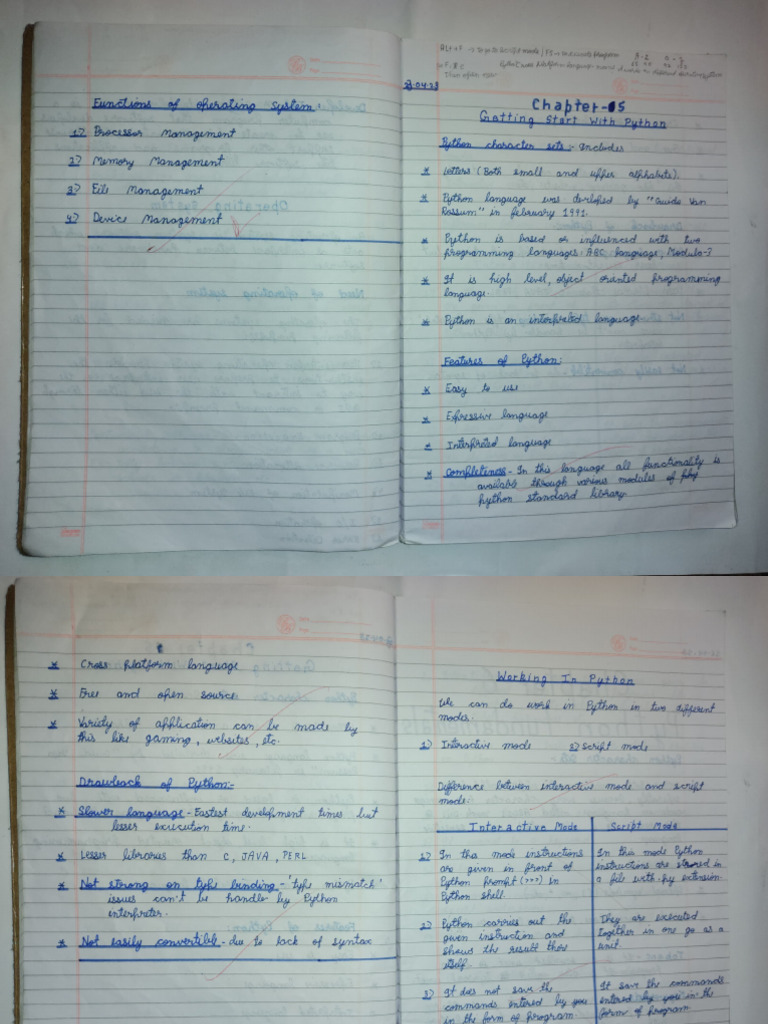 Functions of operating System:
1) Processor Management
2) Memory Management
3) File Management
4) Device Management
Alt + F → to go to script mode / F5 → to execute program
Then often
Chapter-05
Gotting Start With Python
Python character sets:- Includes
* Letters (Both small and upper alphabets).
* Python language was devloped by "Guido Van
Rossum" in february 1991.
* Python is based or influenced with two
programming languages: ABC language, Modula-3
* It is high level, object oriented programming
language.
* Python is an interpreted language
Features of Python:
* Easy to use
* Expressive language
* Interpreted language
* Completeness - In this language all functionality is
available through various modules of
python standard library.
* Cross Platform language
* Free and open source
* Variety of application can be made by
this like gaming, websites, etc.
Drawback of Python:-
* Slower language - Fastest development times but
lesser execution time.
* Lesser libraries than C, JAVA, PERL
* Not strong on type binding - 'type mismatch'
issues can't be handle by Python
interpreter.
* Not easily convertible - due to lack of syntax
Working In Python
We can do work in Python in two different
modes.
1) Interactive mode 2) Script mode
Difference between interactive mode and script
mode:
Interactive Mode Script Mode
1) In this mode instructions
are given in front of
Python Prompt (>>>) in
Python shell.
In this mode Python
instructions are stored in
a file with .py extension.
2) Python carries out the
given instruction and
shows the result there
itself.
They are executed
together in one go as a
unit.
3) It does not save the
commands entered by you
in the form of program.
It save the commands
entered by you in the
form of program